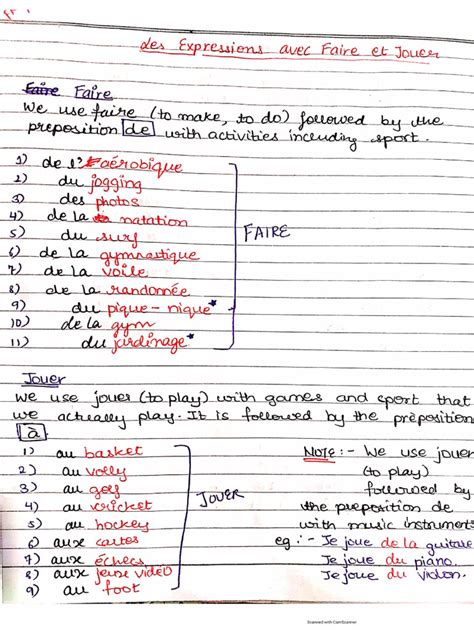 Les Expressions avec Faire et Jouer
Faire Faire
We use faire (to make, to do) followed by the
preposition de with activities including sport.
1) de l'aérobique
2) du jogging
3) des photos
4) de la natation
5) du surf
6) de la gymnastique
7) de la voile
8) de la randonnée
9) du pique-nique*
10) de la gym
11) du jardinage*
FAIRE
Jouer
We use jouer (to play) with games and sport that
we actually play. It is followed by the préposition
à
1) au basket
2) au volly
3) au golf
4) au cricket
5) au hockey
6) aux cartes
7) aux échecs
8) aux jeux vidéo
9) au foot
JOUER
NOTE:- We use jouer
(to play)
followed by
the preposition de
with music instruments
eg:- Je joue de la guitare
Je joue du piano.
Je joue du violon.
Scanned with CamScanner